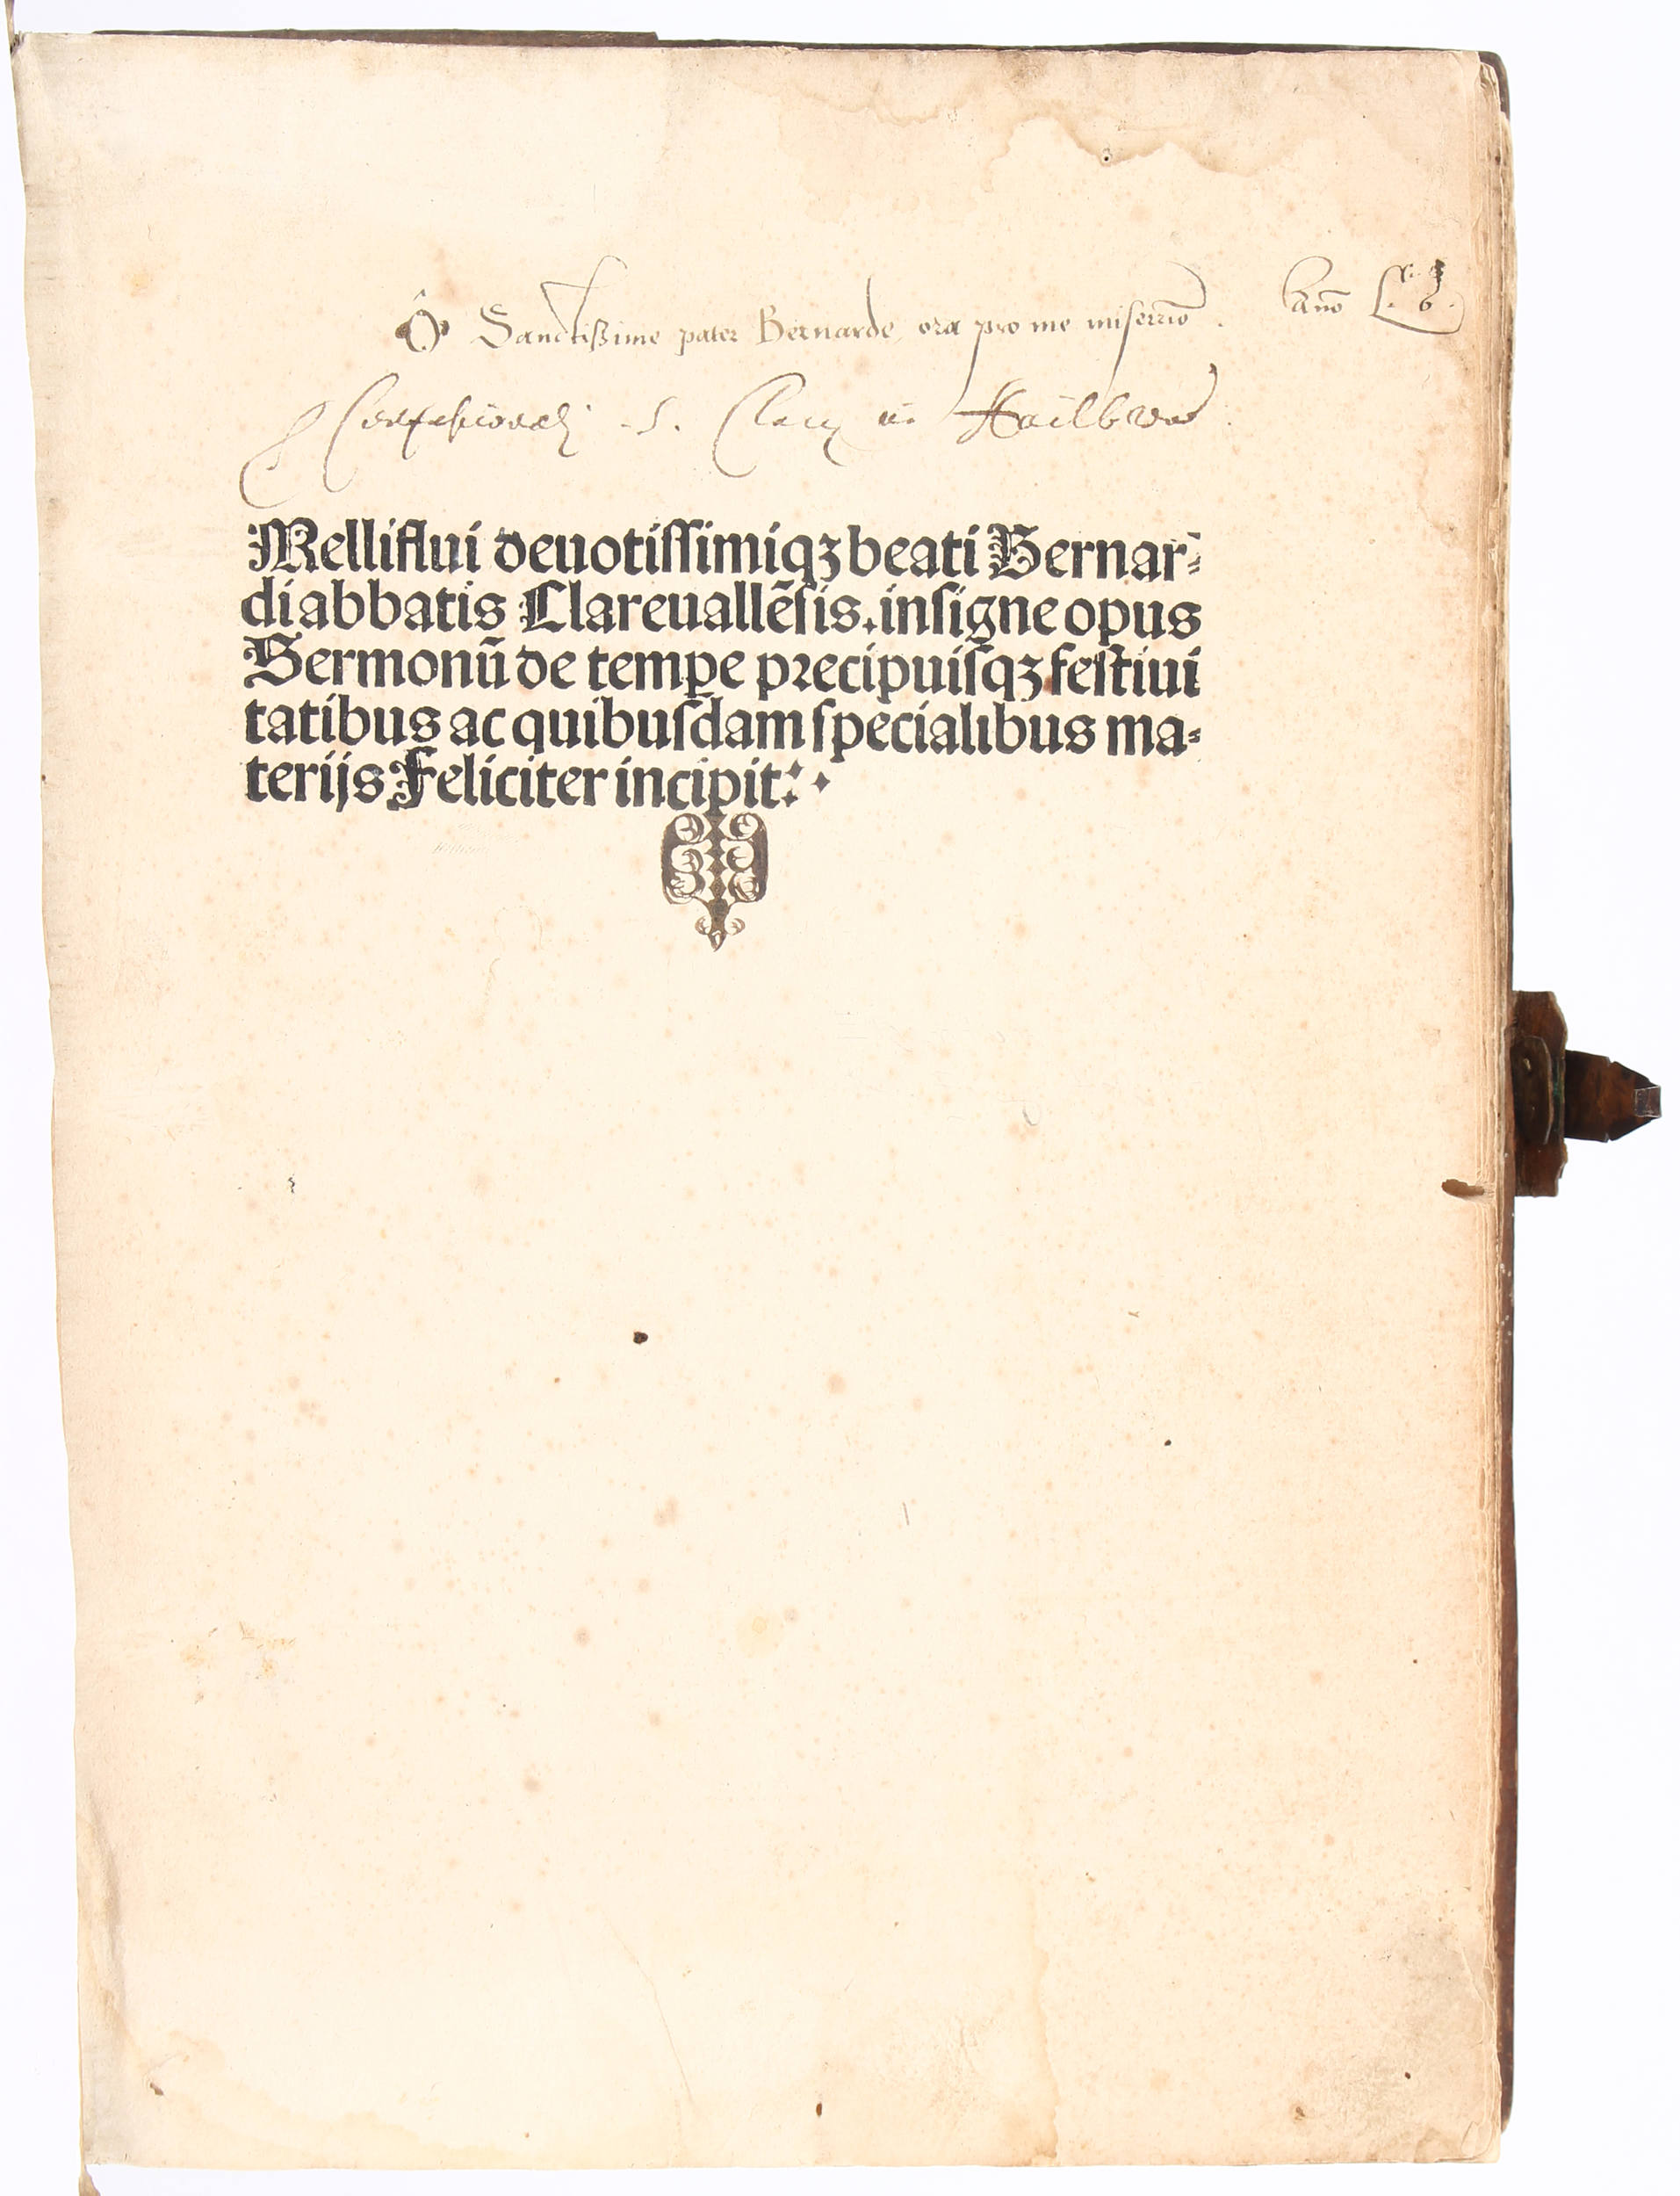 O Sanctißime pater Bernarde, ora pro me miserrīo. anno
S. Claræ in Hailbron
Mellifluí deuotiſſimiqꝫ beati Bernar⸗
di abbatis Clareuallēſis. inſigne opus
Sermonū de tempe precipuiſqꝫ feſtiui
tatibus ac quibuſdam ſpecialibus ma⸗
terijs Feliciter incipit:·